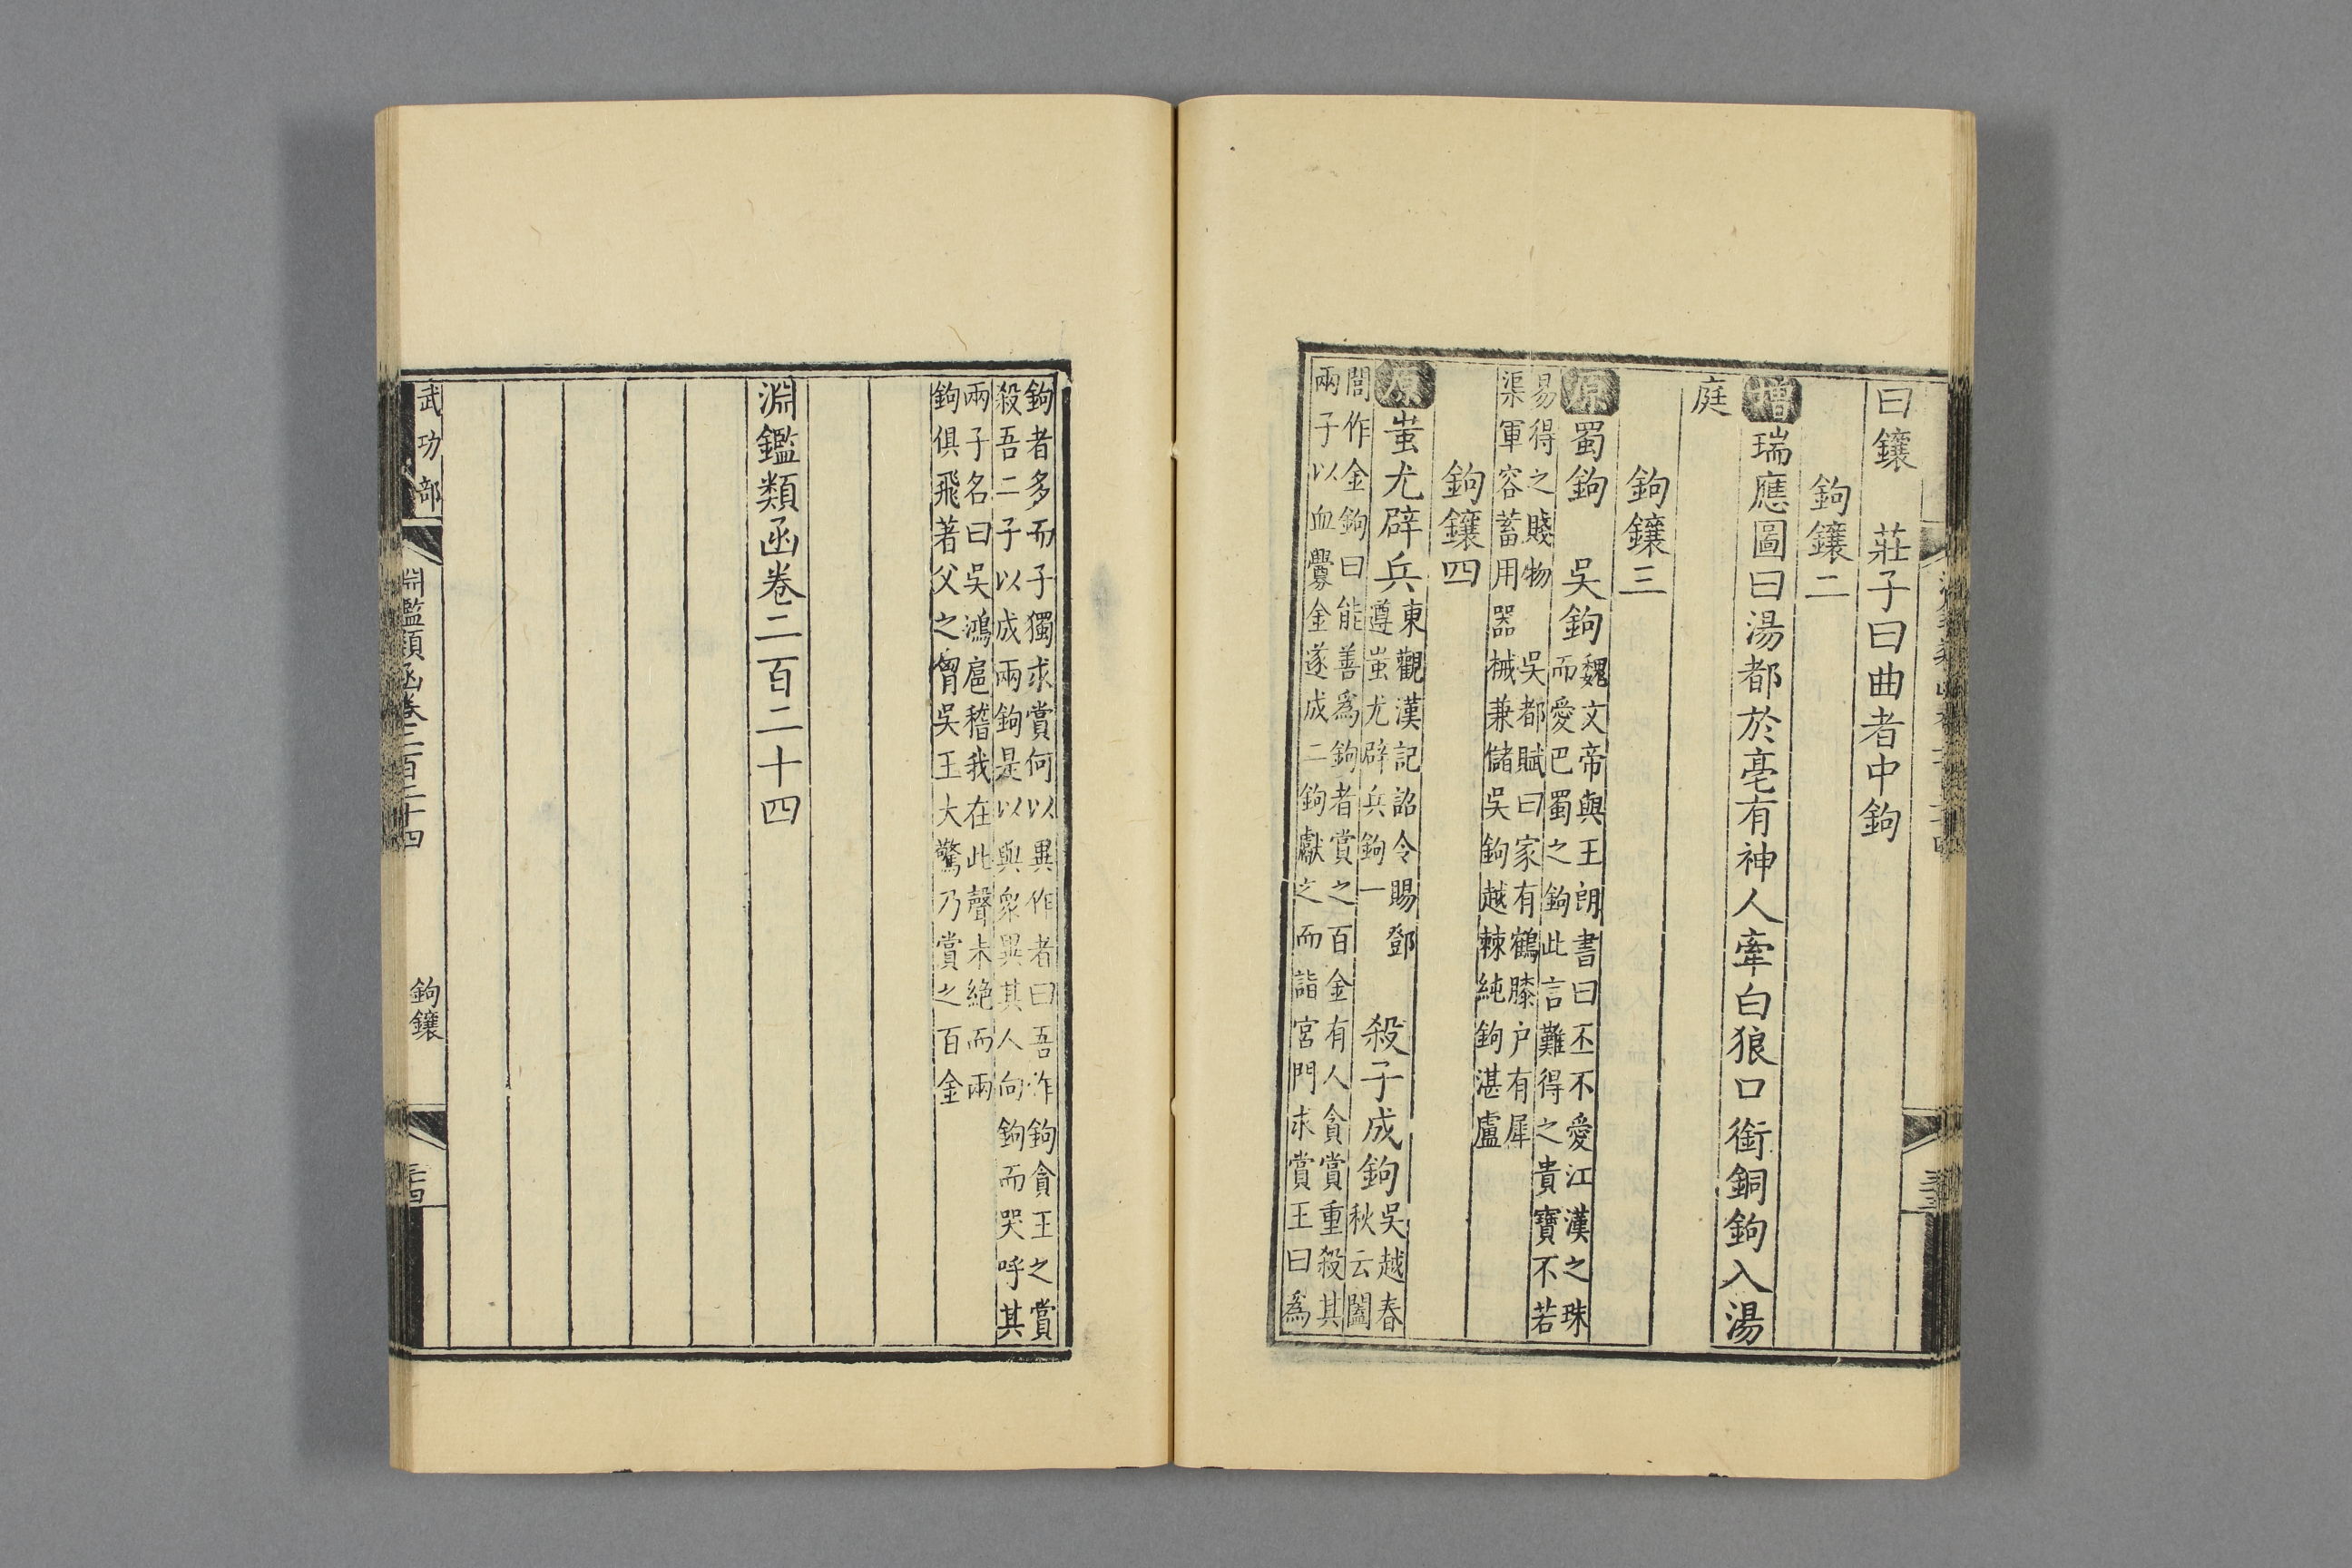 曰鑲　莊子曰曲者中鉤
鉤鑲二
增瑞應圖曰湯都於亳有神人牽白狼口銜銅鉤入湯
庭
鉤鑲三
原蜀鉤　吳鉤魏文帝與王朗書曰丕不愛江漢之珠
而愛巴蜀之鉤此言難得之貴寶不若
易得之賤物　吳都賦曰家有鶴膝户有犀
渠軍容蓄用器械兼儲吳鉤越棘純鉤湛盧
鉤鑲四
原蚩尤辟兵東觀漢記詔令賜鄧
遵蚩尤辟兵鉤一　殺子成鉤吳越春
秋云闔
閭作金鉤曰能善爲鉤者賞之百金有人貪賞重殺其
兩子以血釁金遂成二鉤獻之而詣宮門求賞王曰爲
鉤者多而子獨求賞何以異作者曰吾作鉤貪王之賞
殺吾二子以成兩鉤是以與衆異其人向鉤而哭呼其
兩子名曰吳鴻扈稽我在此聲未絶而兩
鉤俱飛著父之胷吳王大驚乃賞之百金
淵鑑類函卷二百二十四
武功部
淵鑑類函卷二百二十四
鉤鑲
三十四